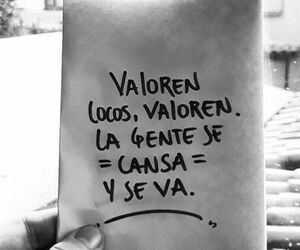 VALOREN
LOCOS, VALOREN.
LA GENTE SE
= CANSA =
Y SE VA.